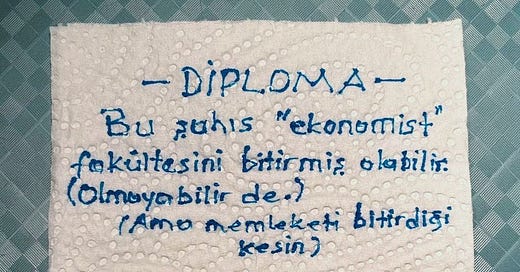 - DİPLOMA -
Bu şahıs "ekonomist"
fakültesini bitirmiş olabilir.
(Olmayabilir de.)
(Ama memleketi bitirdiği
kesin)